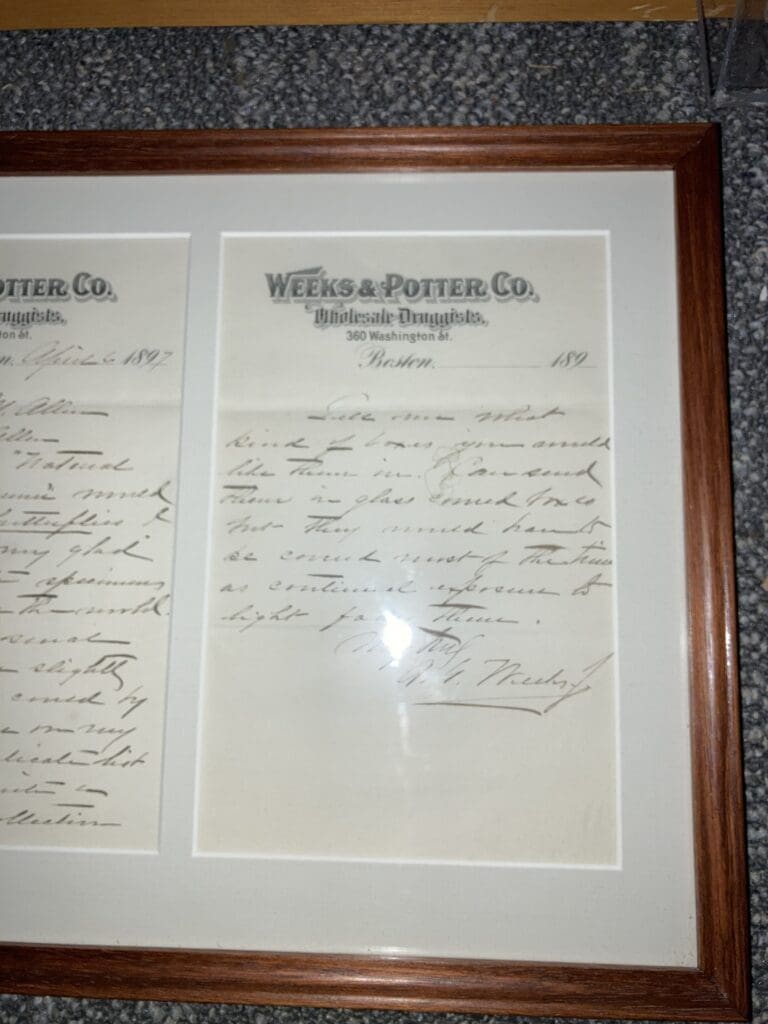 OTTER CO.
ruggists,
ton St.
n. April 6 1897
Allen
Allen
"Natural
would
butterflies &
my glad
specimens
in the world.
slightly
coned by
on my
licate list
ollection
WEEKS & POTTER CO.
Wholesale Druggists,
360 Washington St.
Boston, 189
Tell me what
kind of boxes you would
like them in. I can send
them in glass covered boxes
but they would have to
be covered most of the time
as continued exposure to
light fades them.
A. G. Weeks Jr